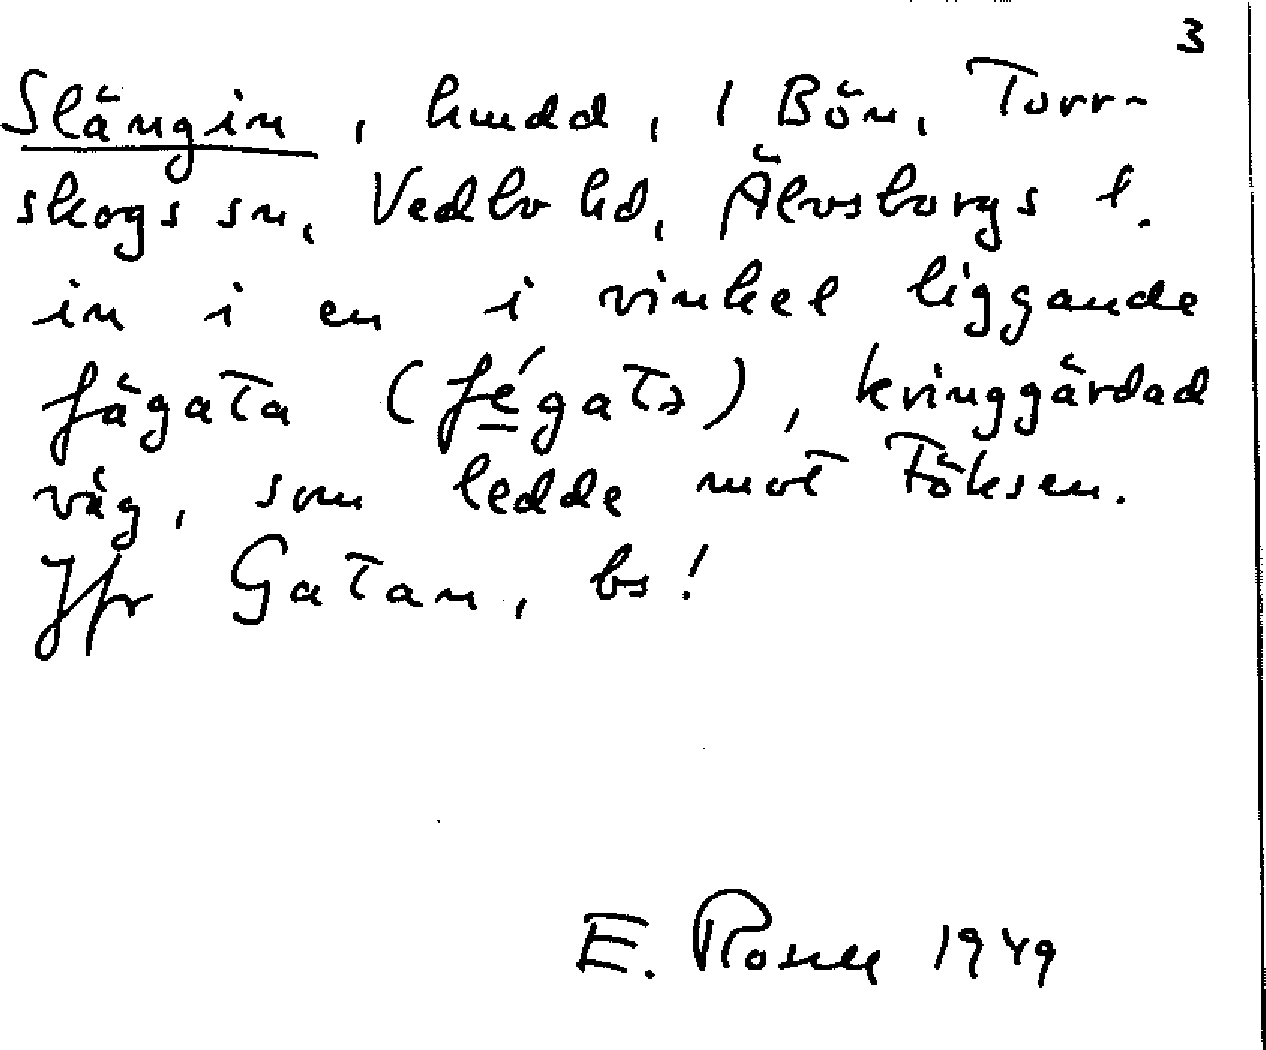 3
Slängin, hmdd, 1 Bön, Torr-
skogs sn, Vedbo hd, Älvsborgs l.
in i en i vinkel liggande
fägata (fégatə), kringgärdad
väg, som ledde mot Töksen.
Jfr Gatan, bs!
E. Rosell 1949